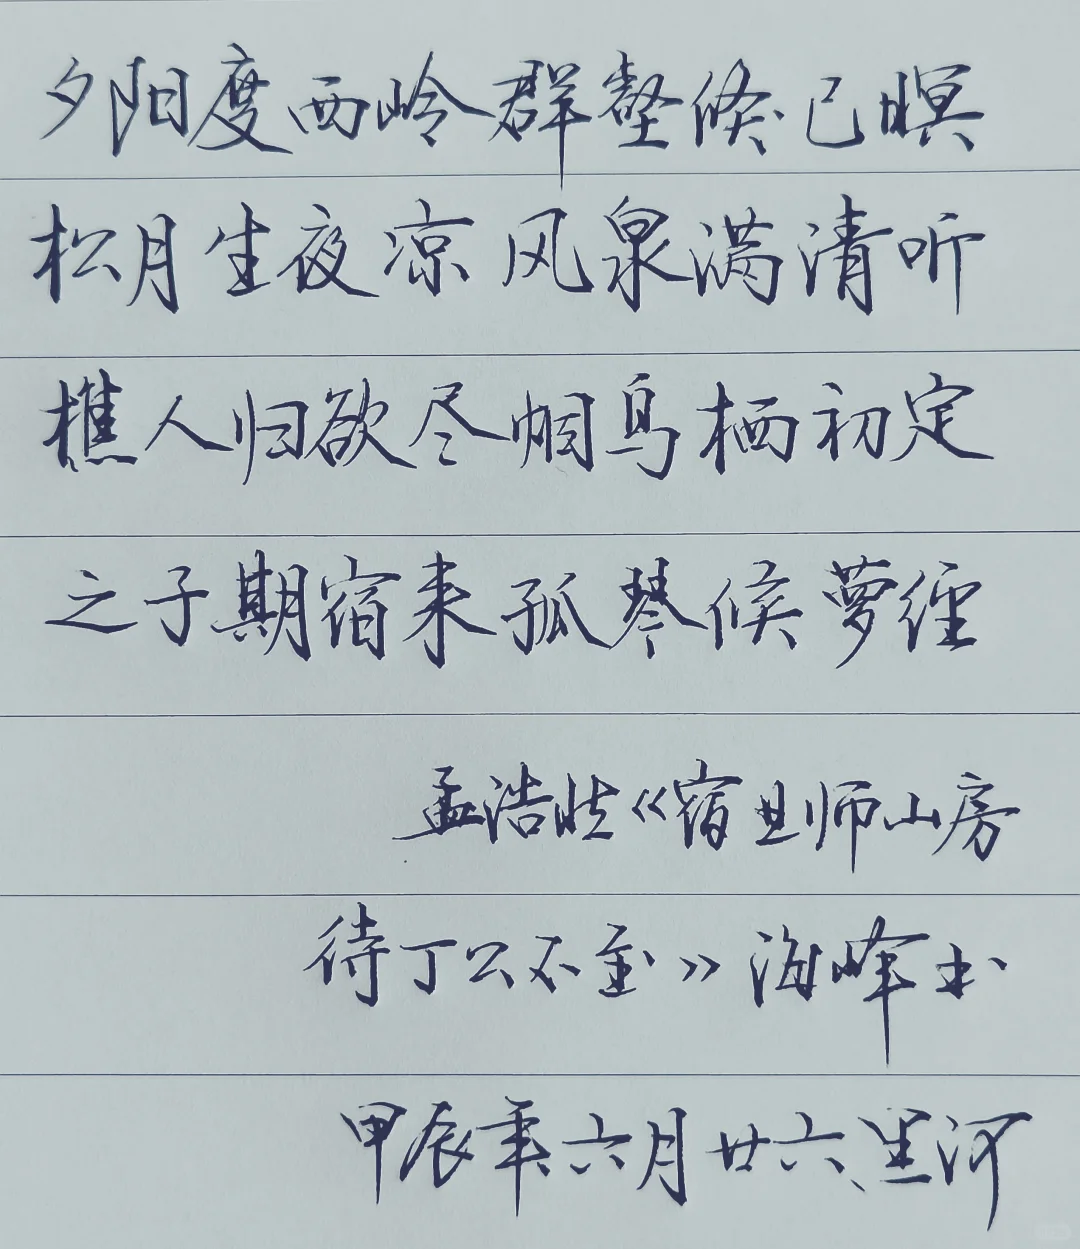 夕阳度西岭群壑倏已暝
松月生夜凉风泉满清听
樵人归欲尽烟鸟栖初定
之子期宿来孤琴候萝径
孟浩然《宿业师山房
待丁公不至》海峰书
甲辰年六月廿六、黑河